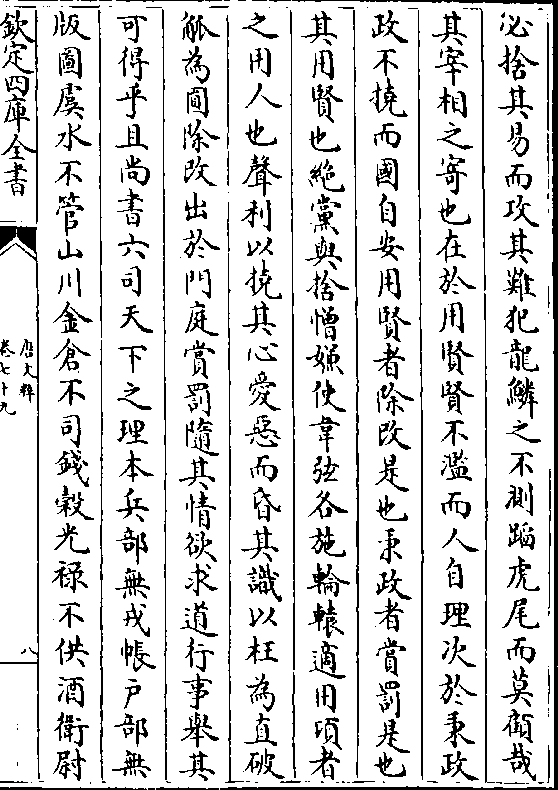 必捨其易而攻其難犯龍鱗之不測蹈虎尾而莫顧哉
其宰相之寄也在於用賢賢不濫而人自理次於秉政
政不撓而國自安用賢者除改是也秉政者賞罰是也
其用賢也絕黨與捨憎嫌使韋弦各施輪轅適用項者
之用人也聲利以撓其心愛惡而昏其識以枉為直破
觚為圓除改出於門庭賞罰隨其情欲求道行事舉其
可得乎且尚書六司天下之理本兵部無戎帳戶部無
版圖虞水不管山川金倉不司錢穀光祿不供酒衛尉
欽定四庫全書
唐文粹
卷七十九
八